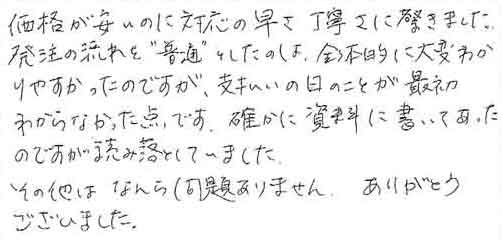 価格が安いのに対応の早さ丁寧さに驚きました。
発注の流れを"普通"としたのは、全体的に大変わか
りやすかったのですが、支払いの日のことが最初
わからなかった点です。確かに資料に書いてあった
のですが読み落としていました。
その他はなんら問題ありません。ありがとう
ございました。